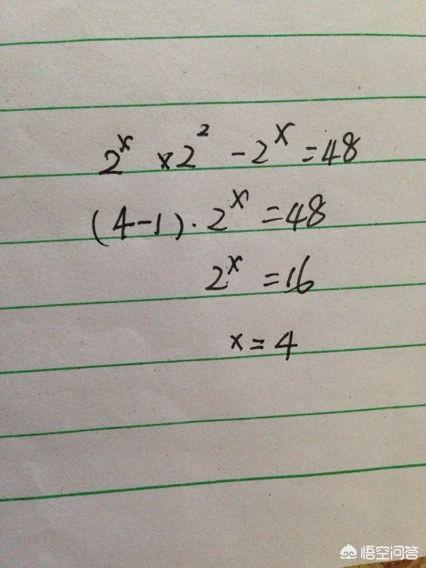 2ˣ × 2² - 2ˣ = 48
(4-1)·2ˣ = 48
2ˣ = 16
x = 4
悟空问答